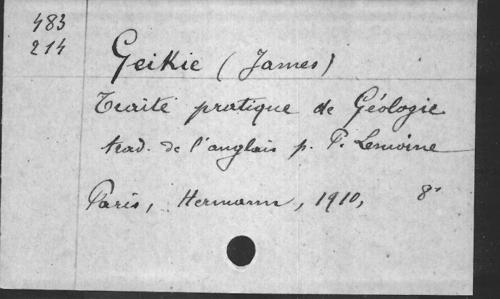 483
214
Geikie (James)
Traité pratique de Géologie
trad. de l'anglais p. P. Lemoine
Paris, Hermann, 1910, 8°